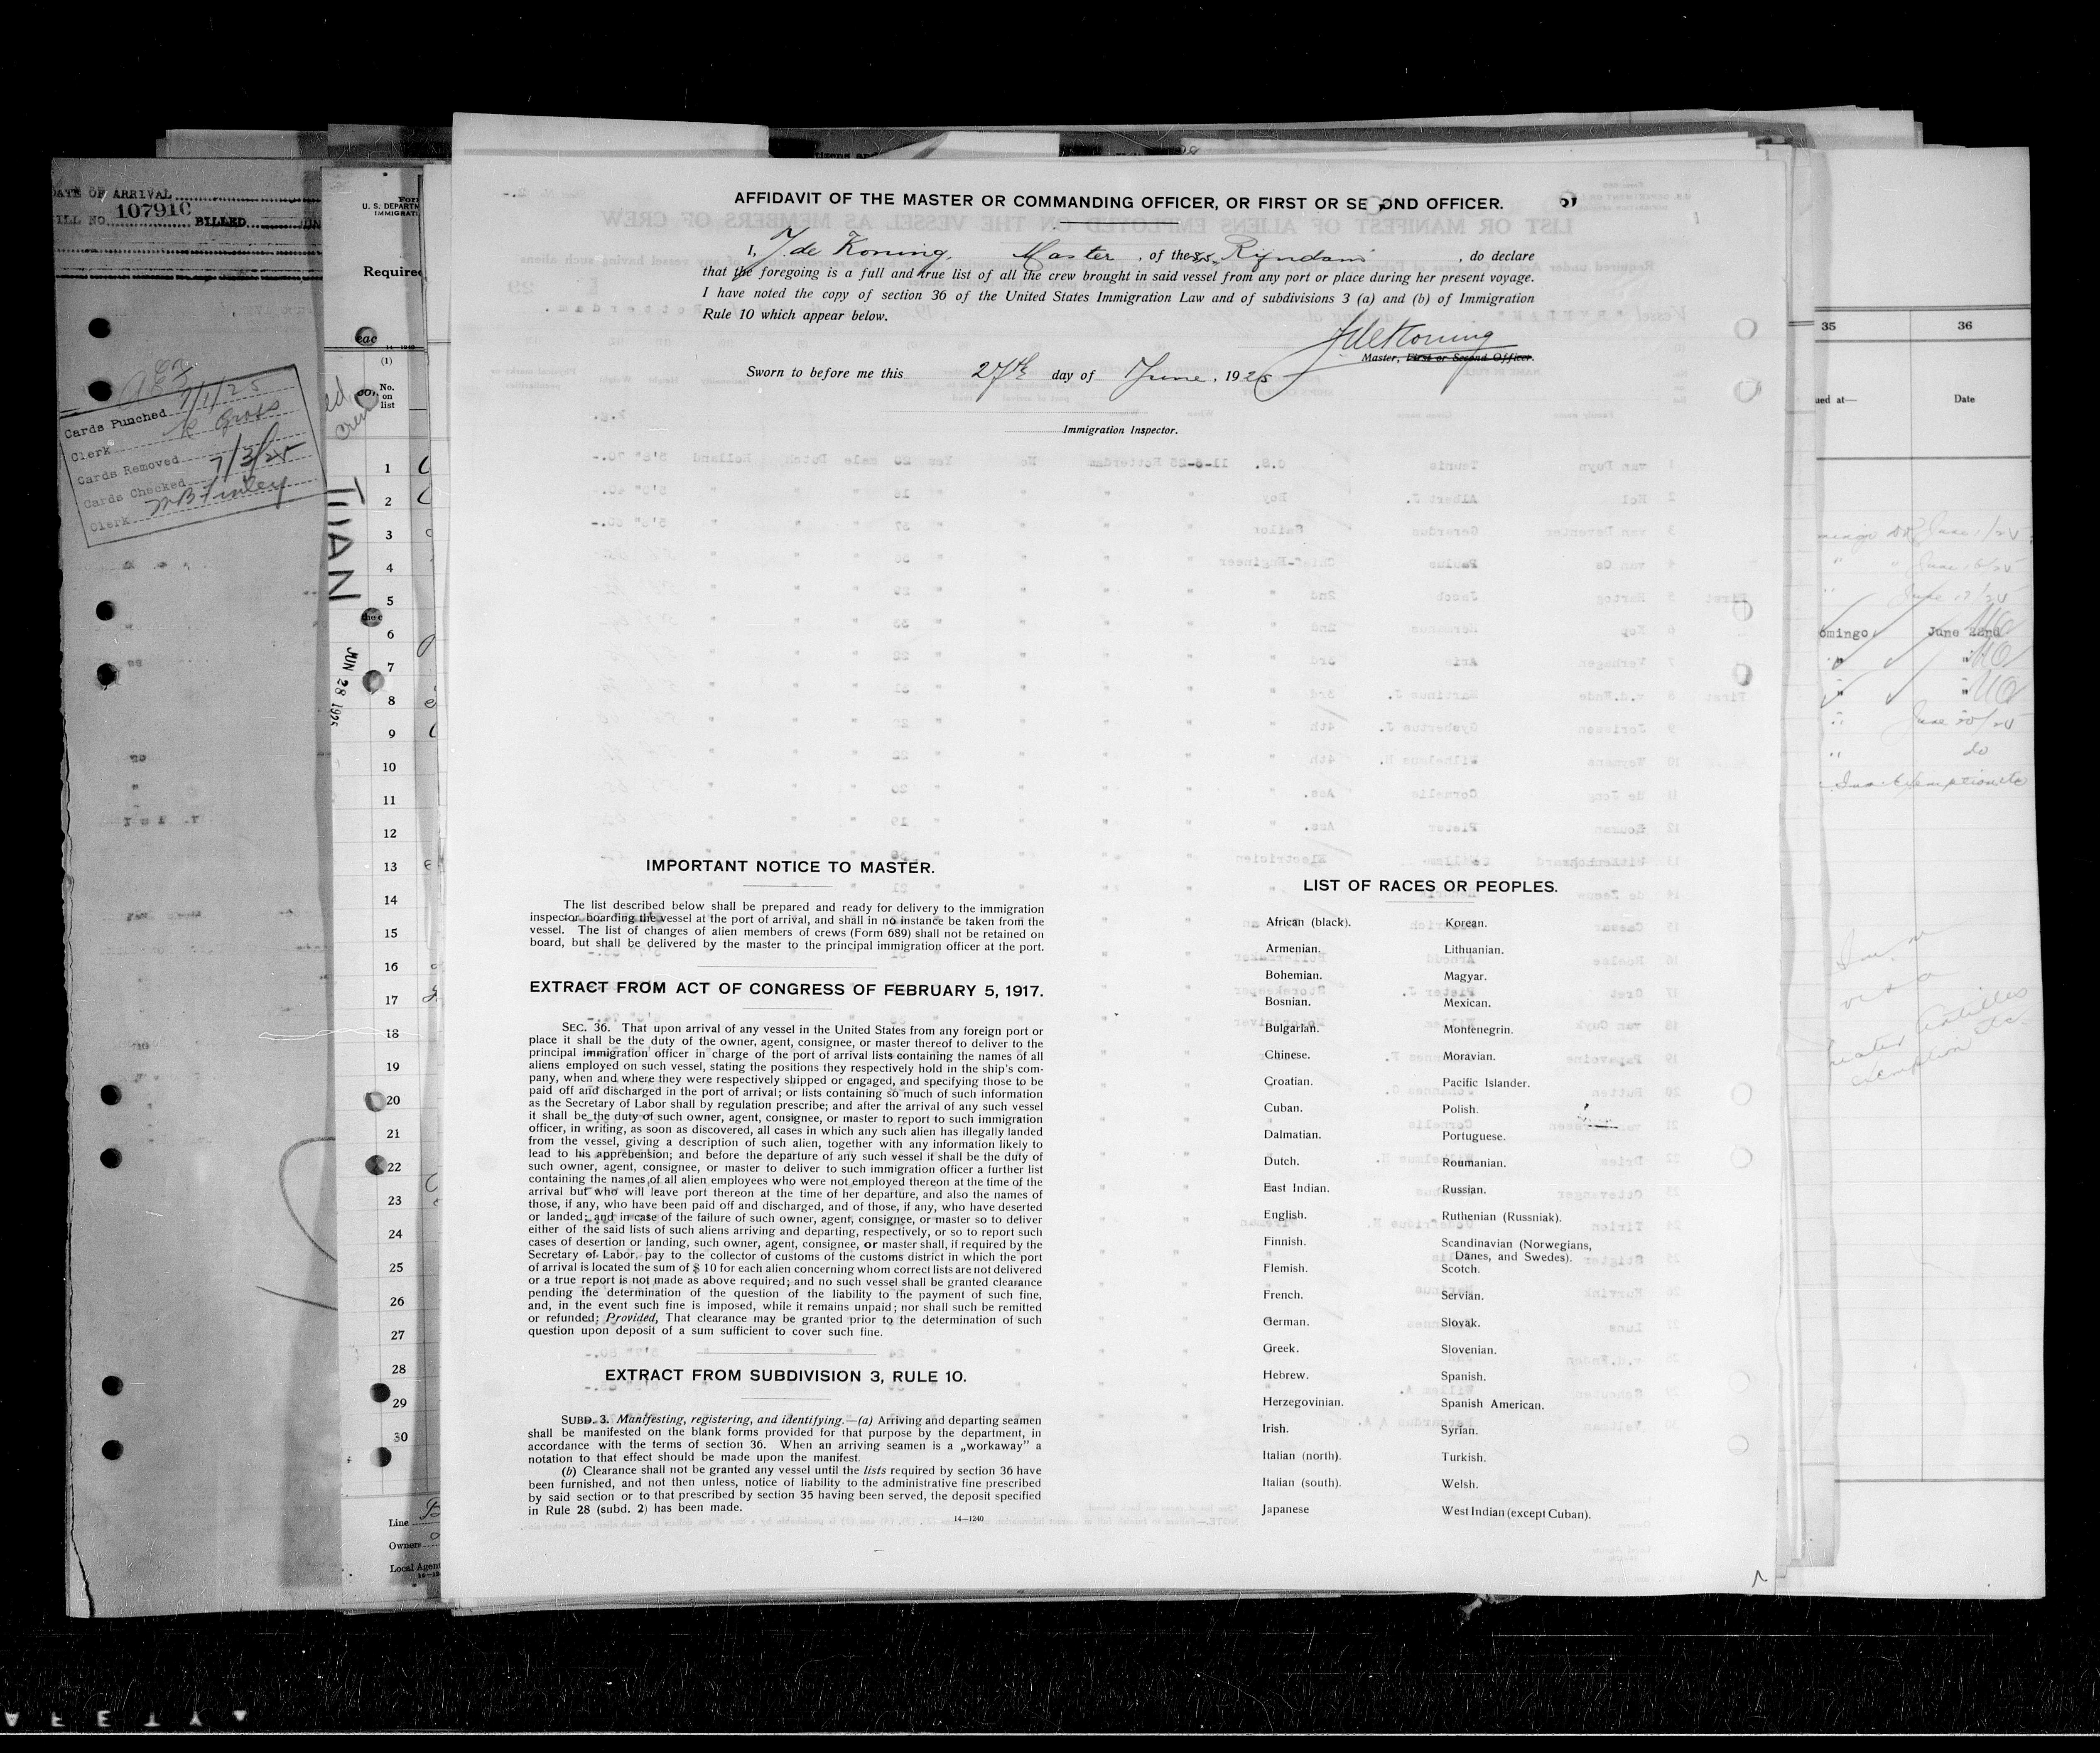 DATE OF ARRIVAL
BILL NO. 107910 BILLED JUN
Cards Punched 7/1/25
Clerk K Gross
Cards Removed
Cards Checked 7/3/25
Clerk
U. S. DEPARTM
IMMIGRATI
Required
(1)
No.
on
list
JUN 28 1925
1
2
3
4
5
6
7
8
9
10
11
12
13
14
15
16
17
18
19
20
21
22
23
24
25
26
27
28
29
30
Line
Owners
Local Agent
AFFIDAVIT OF THE MASTER OR COMMANDING OFFICER, OR FIRST OR SECOND OFFICER.
I, J de Koning, Master, of the S.S. Ryndam, do declare
that the foregoing is a full and true list of all the crew brought in said vessel from any port or place during her present voyage.
I have noted the copy of section 36 of the United States Immigration Law and of subdivisions 3 (a) and (b) of Immigration
Rule 10 which appear below.
J de Koning
Master, First or Second Officer.
Sworn to before me this 27th day of June, 1925
Immigration Inspector.
IMPORTANT NOTICE TO MASTER.
The list described below shall be prepared and ready for delivery to the immigration
inspector boarding the vessel at the port of arrival, and shall in no instance be taken from the
vessel. The list of changes of alien members of crews (Form 689) shall not be retained on
board, but shall be delivered by the master to the principal immigration officer at the port.
EXTRACT FROM ACT OF CONGRESS OF FEBRUARY 5, 1917.
SEC. 36. That upon arrival of any vessel in the United States from any foreign port or
place it shall be the duty of the owner, agent, consignee, or master thereof to deliver to the
principal immigration officer in charge of the port of arrival lists containing the names of all
aliens employed on such vessel, stating the positions they respectively hold in the ship's com-
pany, when and where they were respectively shipped or engaged, and specifying those to be
paid off and discharged in the port of arrival; or lists containing so much of such information
as the Secretary of Labor shall by regulation prescribe; and after the arrival of any such vessel
it shall be the duty of such owner, agent, consignee, or master to report to such immigration
officer, in writing, as soon as discovered, all cases in which any such alien has illegally landed
from the vessel, giving a description of such alien, together with any information likely to
lead to his apprehension; and before the departure of any such vessel it shall be the duty of
such owner, agent, consignee, or master to deliver to such immigration officer a further list
containing the names of all alien employees who were not employed thereon at the time of the
arrival but who will leave port thereon at the time of her departure, and also the names of
those, if any, who have been paid off and discharged, and of those, if any, who have deserted
or landed; and in case of the failure of such owner, agent, consignee, or master so to deliver
either of the said lists of such aliens arriving and departing, respectively, or so to report such
cases of desertion or landing, such owner, agent, consignee, or master shall, if required by the
Secretary of Labor, pay to the collector of customs of the customs district in which the port
of arrival is located the sum of $ 10 for each alien concerning whom correct lists are not delivered
or a true report is not made as above required; and no such vessel shall be granted clearance
pending the determination of the question of the liability to the payment of such fine,
and, in the event such fine is imposed, while it remains unpaid; nor shall such be remitted
or refunded: Provided, That clearance may be granted prior to the determination of such
question upon deposit of a sum sufficient to cover such fine.
EXTRACT FROM SUBDIVISION 3, RULE 10.
SUBD. 3. Manifesting, registering, and identifying.—(a) Arriving and departing seamen
shall be manifested on the blank forms provided for that purpose by the department, in
accordance with the terms of section 36. When an arriving seamen is a „workaway” a
notation to that effect should be made upon the manifest.
(b) Clearance shall not be granted any vessel until the lists required by section 36 have
been furnished, and not then unless, notice of liability to the administrative fine prescribed
by said section or to that prescribed by section 35 having been served, the deposit specified
in Rule 28 (subd. 2) has been made.
14—1240
LIST OF RACES OR PEOPLES.
African (black).
Armenian.
Bohemian.
Bosnian.
Bulgarian.
Chinese.
Croatian.
Cuban.
Dalmatian.
Dutch.
East Indian.
English.
Finnish.
Flemish.
French.
German.
Greek.
Hebrew.
Herzegovinian.
Irish.
Italian (north).
Italian (south).
Japanese
Korean.
Lithuanian.
Magyar.
Mexican.
Montenegrin.
Moravian.
Pacific Islander.
Polish.
Portuguese.
Roumanian.
Russian.
Ruthenian (Russniak).
Scandinavian (Norwegians,
Danes, and Swedes).
Scotch.
Servian.
Slovak.
Slovenian.
Spanish.
Spanish American.
Syrian.
Turkish.
Welsh.
West Indian (except Cuban).
35
36
ued at—
Date
omingo
June 22nd
do